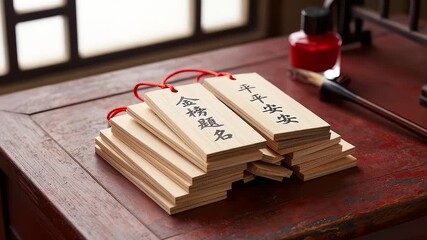 金榜题名
平平安安